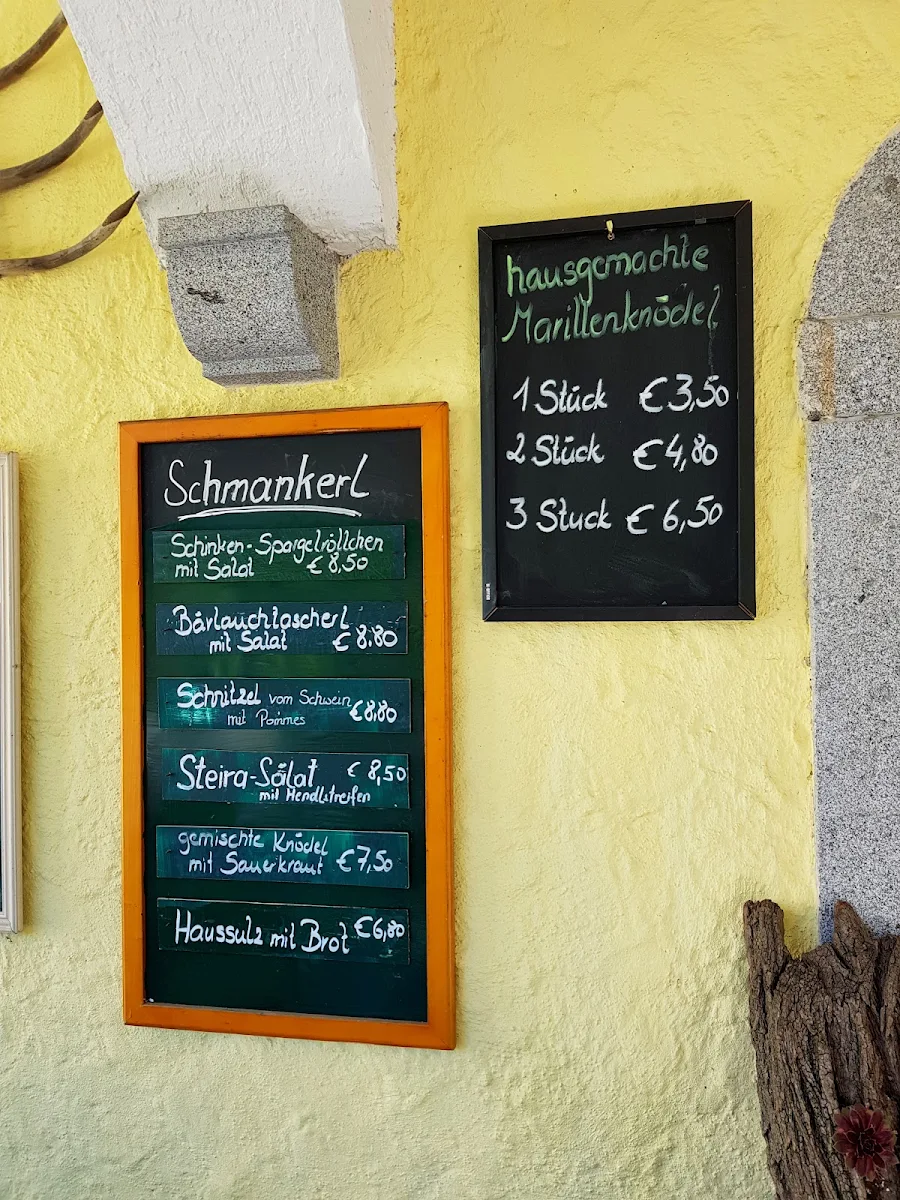 Schmankerl
Schinken-Spargelröllchen
mit Salat € 8,50
Bärlauchtascherl
mit Salat € 8.80
Schnitzel vom Schwein
mit Pommes €8,80
Steira-Salat € 8,50
mit Hendlstreifen
gemischte Knödel
mit Sauerkraut €7,50
Haussulz mit Brot €6,80
hausgemachte
Marillenknödel
1 Stück €3,50
2 Stück €4,80
3 Stuck €6,50